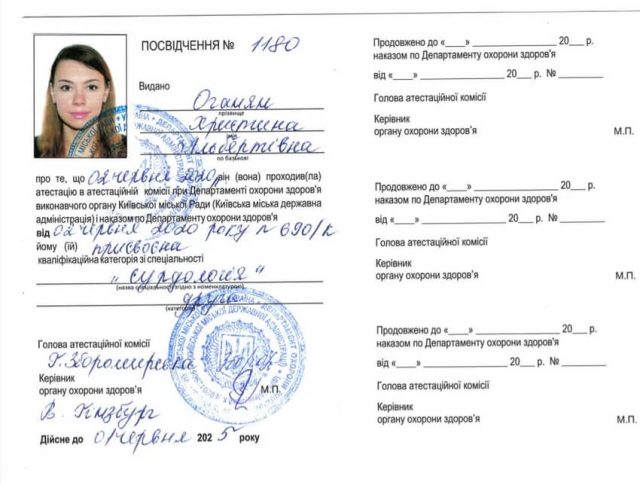 ПОСВІДЧЕННЯ № 1180
Видано
Оганян
прізвище
Христина
Альбертівна
по батькові
про те, що 02 червня 2020 він (вона) проходив(ла)
атестацію в атестаційній комісії при Департаменті охорони здоров'я
виконавчого органу Київської міської Ради (Київська міська державна
адміністрація) і наказом по Департаменту охорони здоров'я
від 02 червня 2020 року № 690/к
йому (їй) присвоєна
кваліфікаційна категорія зі спеціальності
„Сурдологія“
(назва спеціальності згідно з номенклатурою)
друга
(категорія)
Голова атестаційної комісії
Керівник
органу охорони здоров'я
М.П.
В. Гінзбург
Дійсне до 01 червня 2025 року
Продовжено до «____» ________________ 20___ р.
наказом по Департаменту охорони здоров'я
від «____» ________________ 20___ р. № ________
Голова атестаційної комісії
Керівник
органу охорони здоров'я
М.П.
Продовжено до «____» ________________ 20___ р.
наказом по Департаменту охорони здоров'я
від «____» ________________ 20___ р. № ________
Голова атестаційної комісії
Керівник
органу охорони здоров'я
М.П.
Продовжено до «____» ________________ 20___ р.
наказом по Департаменту охорони здоров'я
від «____» ________________ 20___ р. № ________
Голова атестаційної комісії
Керівник
органу охорони здоров'я
М.П.